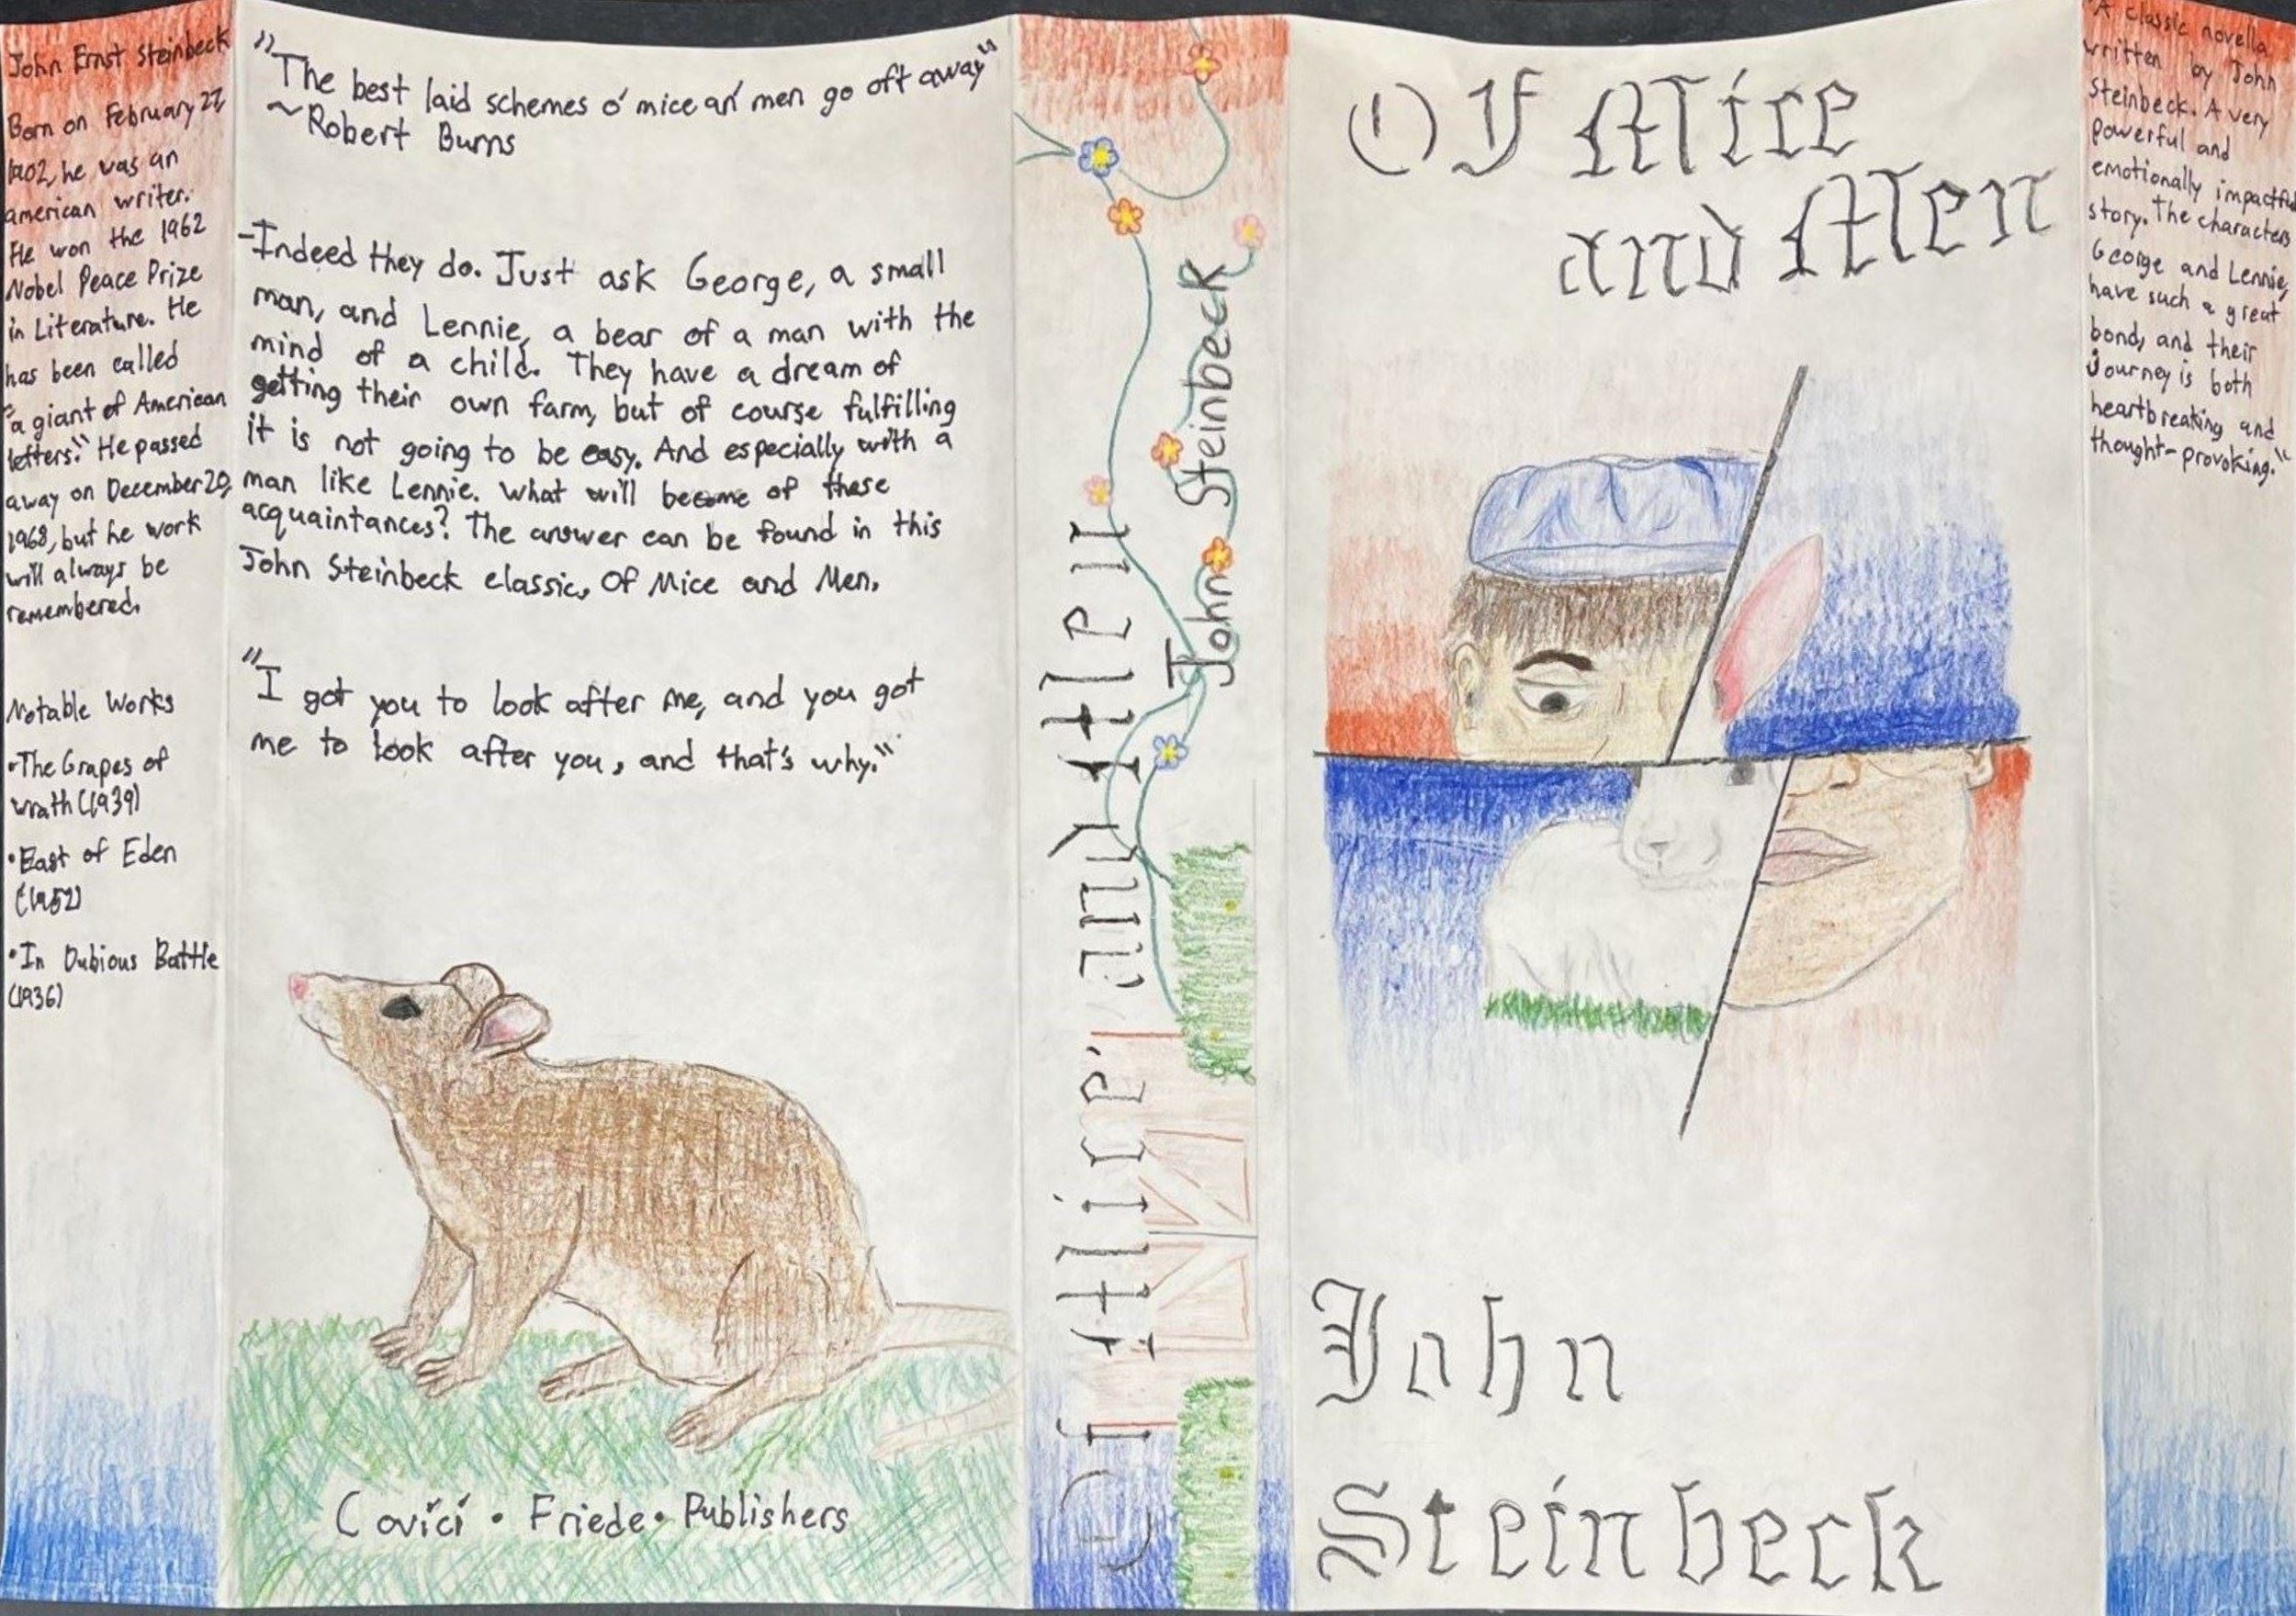 John Ernst Steinbeck
Born on February 27,
1902, he was an
american writer.
He won the 1962
Nobel Peace Prize
in Literature. He
has been called
"a giant of American
letters." He passed
away on December 20,
1968, but he work
will always be
remembered.
Notable Works
•The Grapes of
wrath (1939)
•East of Eden
(1952)
•In Dubious Battle
(1936)
"The best laid schemes o' mice an' men go oft away"
~Robert Burns
-Indeed they do. Just ask George, a small
man, and Lennie, a bear of a man with the
mind of a child. They have a dream of
getting their own farm, but of course fulfilling
it is not going to be easy. And especially with a
man like Lennie. What will become of these
acquaintances? The answer can be found in this
John Steinbeck classic, Of Mice and Men.
"I got you to look after me, and you got
me to look after you, and that's why."
Covici • Friede • Publishers
Of Mice and Men
John Steinbeck
Of Mice
and Men
John
Steinbeck
"A classic novella
written by John
Steinbeck. A very
powerful and
emotionally impactful
story. The characters
George and Lennie,
have such a great
bond, and their
journey is both
heartbreaking and
thought-provoking."